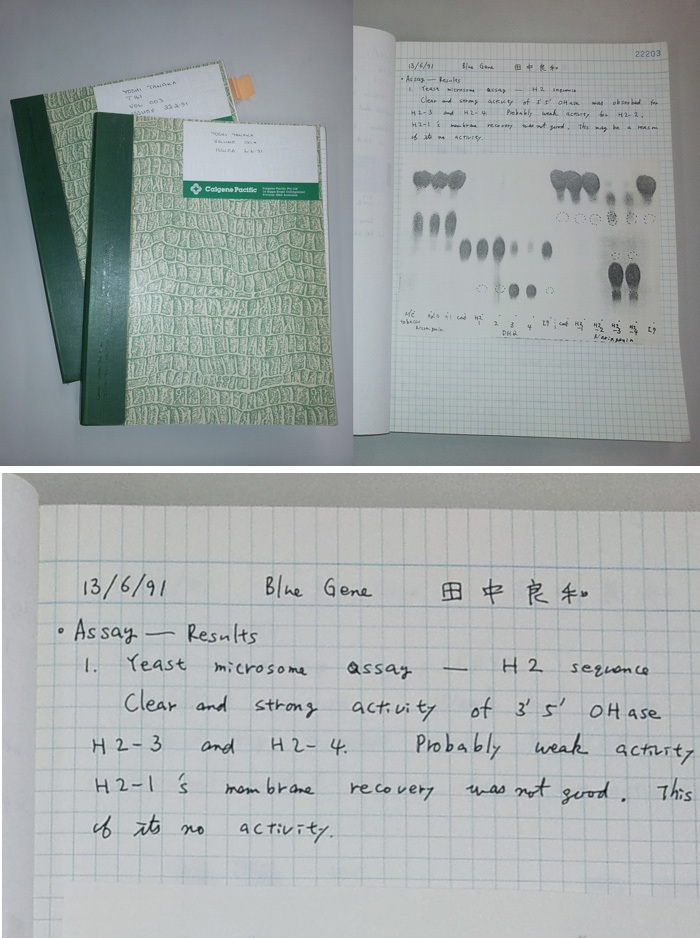 YOSHI TANAKA
VOL 003
YOSHI TANAKA
VOLUME
Calgene Pacific
Calgene Pacific Pty Ltd
22203
13/6/91 Blue Gene 田中良和
• Assay — Results
1. Yeast microsome assay — H2 sequence
Clear and strong activity of 3' 5' OHase was observed for
H2-3 and H2-4. Probably weak activity for H2-2.
H2-1's membrane recovery was not good. This may be a reason
of its no activity.
DH2
Naringenin
13/6/91 Blue Gene 田中良和
• Assay — Results
1. Yeast microsome assay — H2 sequence
Clear and strong activity of 3' 5' OHase
H2-3 and H2-4. Probably weak activity
H2-1's membrane recovery was not good. This
of its no activity.